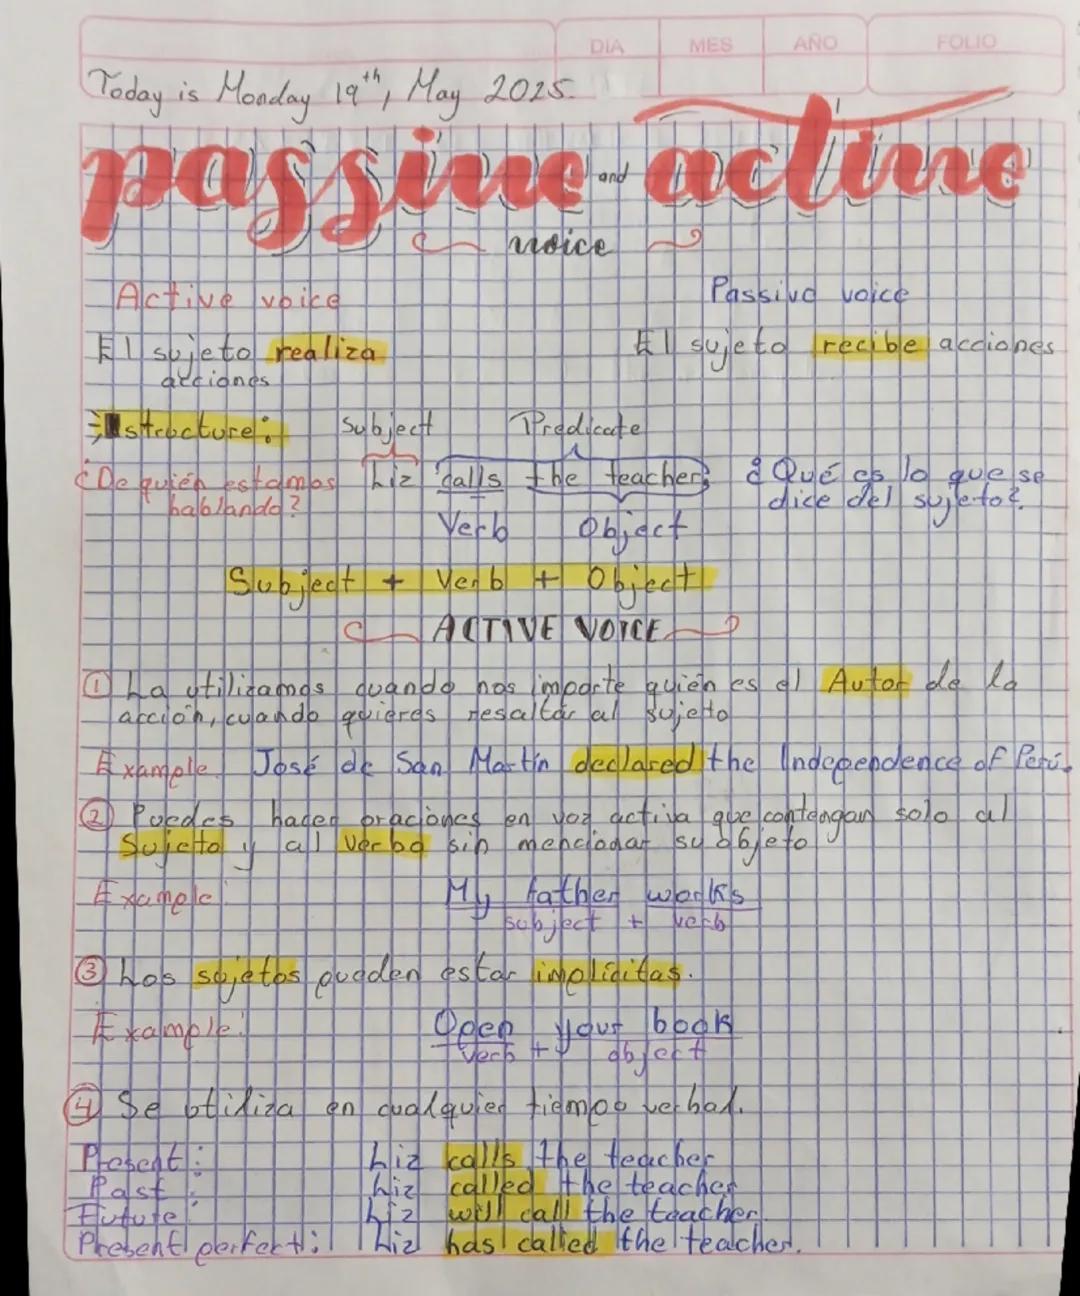 DIA MES AÑO FOLIO
Today is Monday 19th, May 2025.
passive and active
voice
Active voice Passive voice
El sujeto realiza acciones El sujeto recibe acciones
structure: Subject Predicate
¿De quién estamos hablando? Liz calls the teacher. ¿Qué es lo que se dice del sujeto?
Verb Object
Subject + Verb + Object
ACTIVE VOICE
① La utilizamos cuando nos importe quién es el Autor de la
acción, cuando quieres resaltar al sujeto
Example José de San Martín declared the Independence of Perú.
② Puedes hacer oraciones en voz activa que contengan solo al
Sujeto y al verbo sin mencionar su objeto
Example: My father works
subject + verb
③ Los sujetos pueden estar implícitas.
Example: Open your book
verb + object
④ Se utiliza en cualquier tiempo verbal.
Present: Liz calls the teacher
Past: Liz called the teacher
Future: Liz will call the teacher.
Present perfect: Liz has called the teacher.